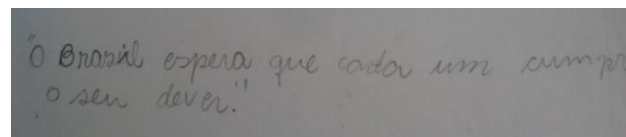 "O Brasil espera que cada um cumpr
o seu dever."